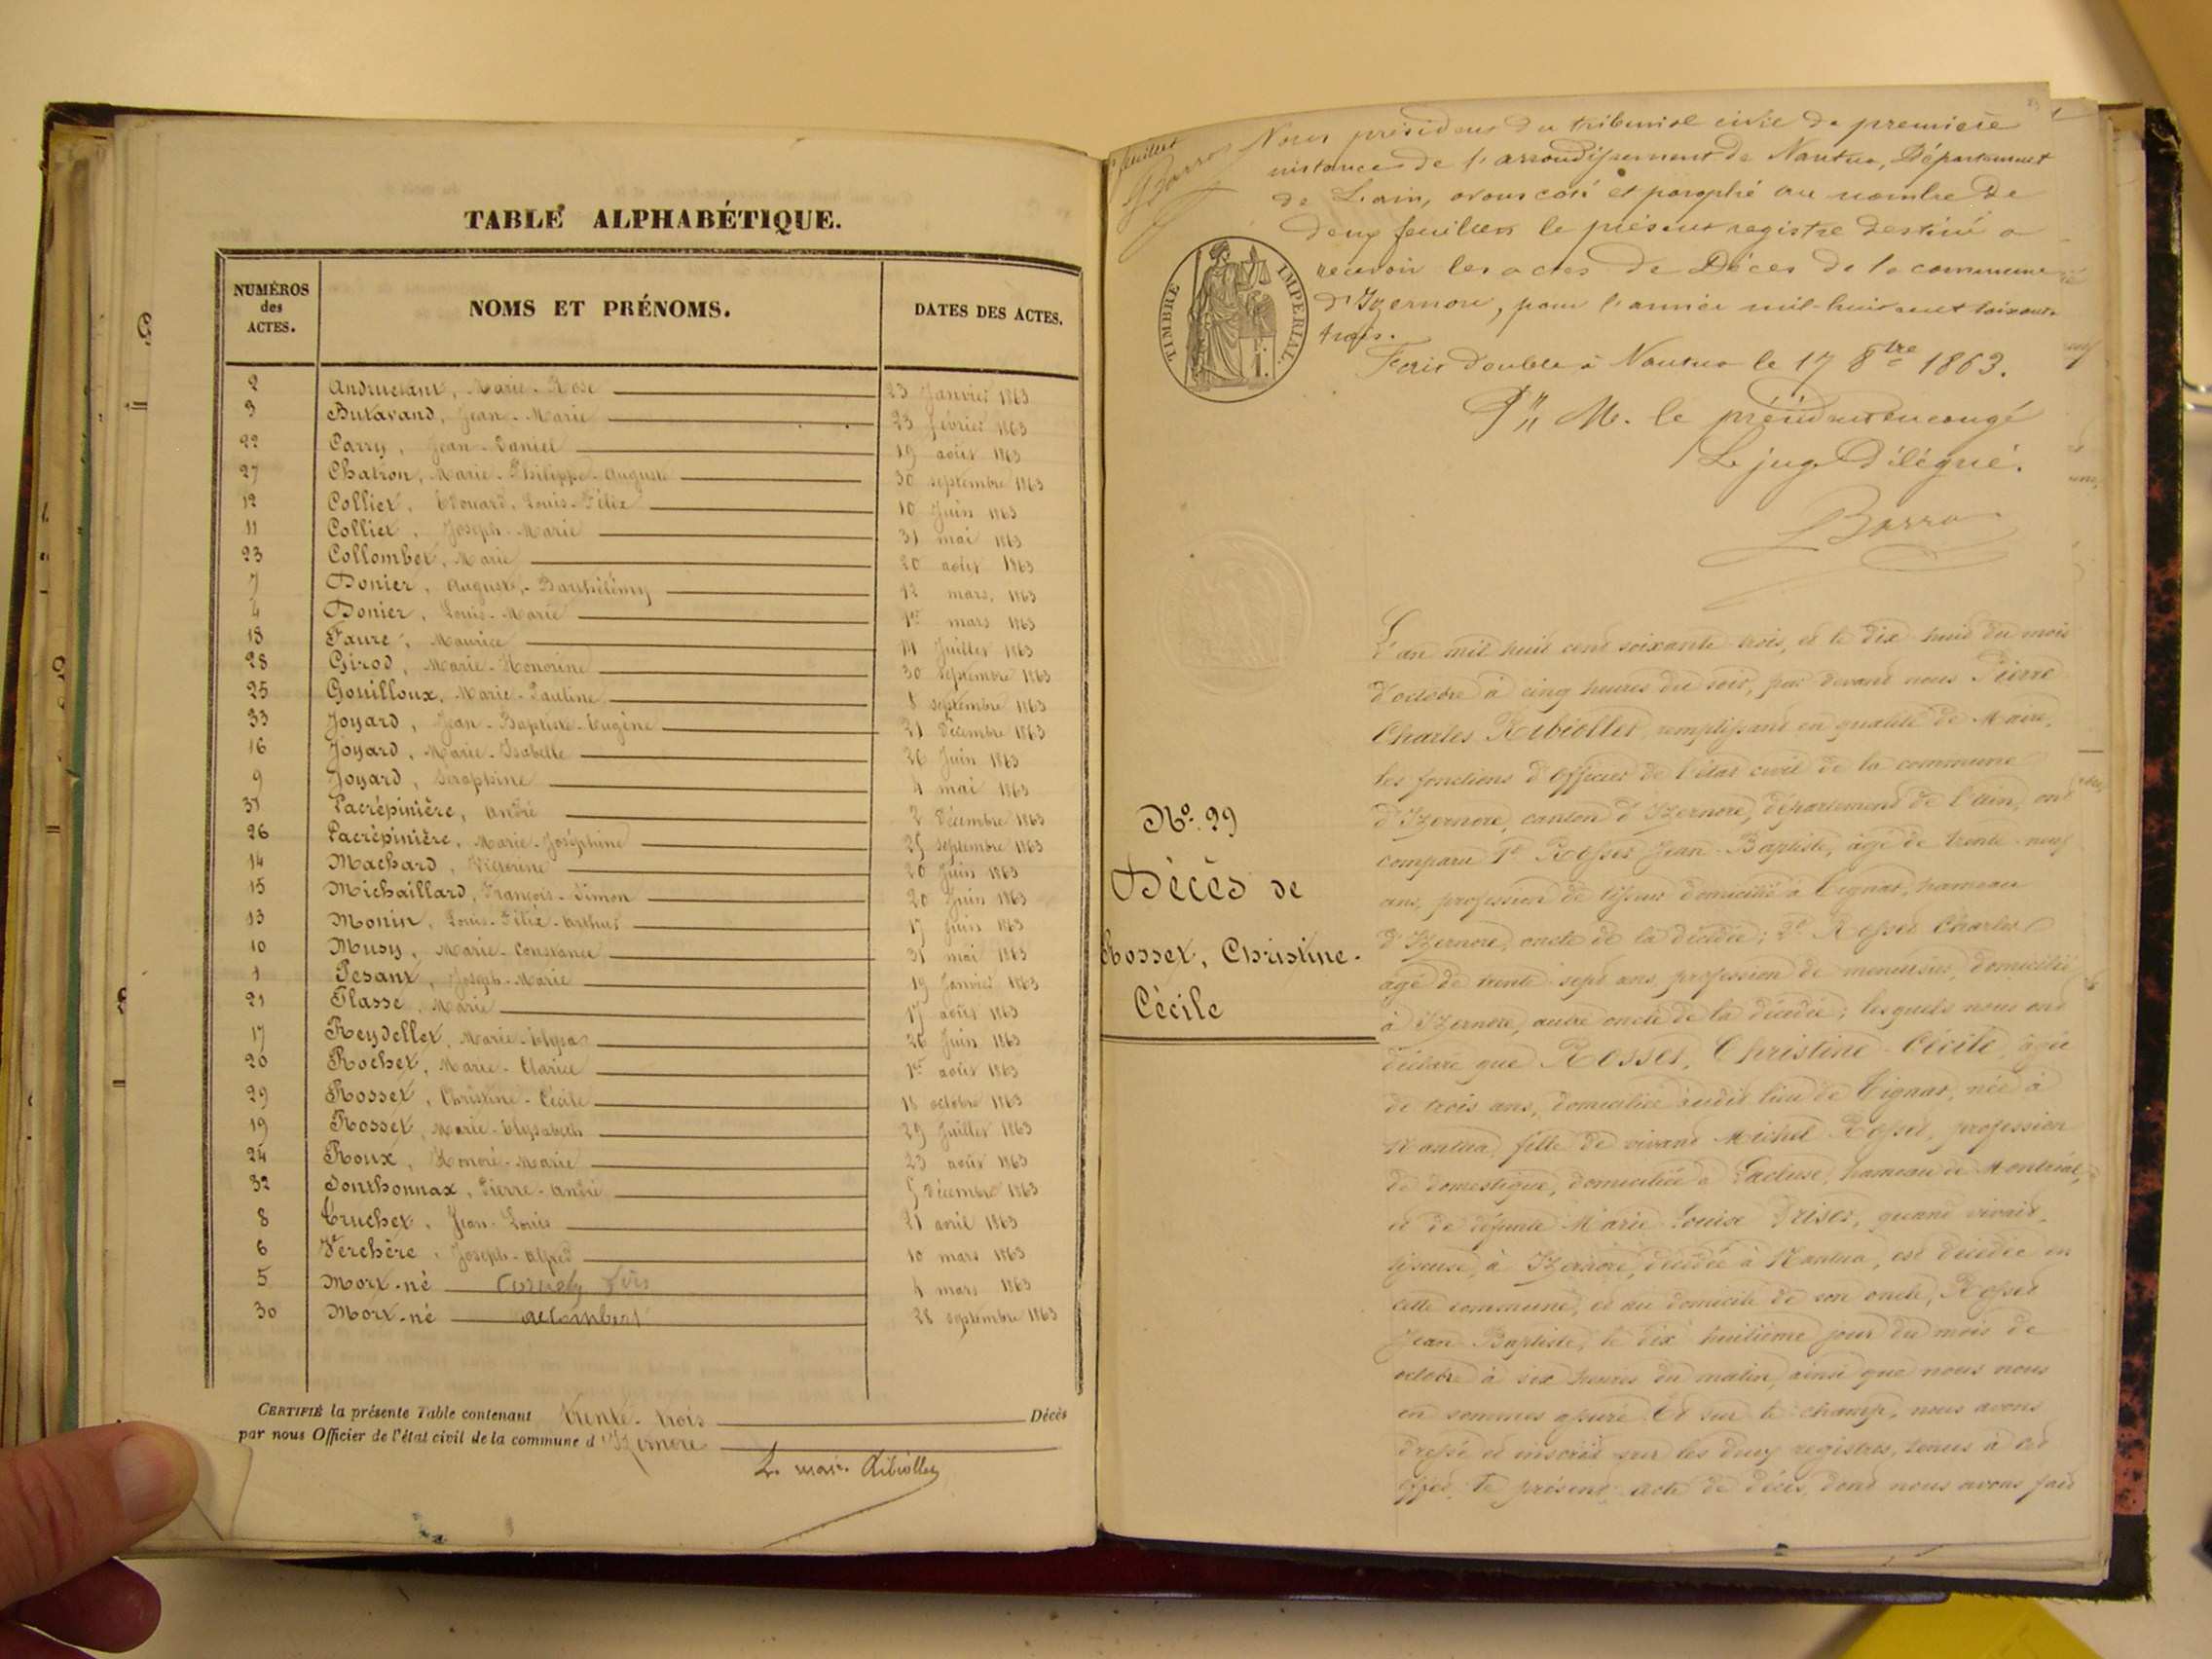 TABLE ALPHABÉTIQUE.
NUMÉROS des ACTES. NOMS ET PRÉNOMS. DATES DES ACTES.
2 Andruetant, Marie-Rose 23 Janvier 1863
3 Butavand, Jean-Marie 23 février 1863
22 Carry, Jean-Daniel 19 août 1863
27 Chatron, Marie-Philippe-Auguste 30 septembre 1863
12 Collier, Edouard-Louis-Félix 10 Juin 1863
11 Collier, Joseph-Marie 31 mai 1863
23 Collombet, Marie 20 août 1863
7 Donier, Auguste-Barthélémy 12 mars 1863
4 Donier, Louis-Marie 1er mars 1863
18 Faure, Maurice 14 Juillet 1863
28 Girod, Marie-Honorine 30 Septembre 1863
25 Gouilloux, Marie-Pauline 8 septembre 1863
33 Joyard, Jean-Baptiste-Eugène 21 Décembre 1863
16 Joyard, Marie-Isabelle 26 Juin 1863
9 Joyard, Séraphine 4 mai 1863
31 Lacrépinière, André 2 Décembre 1863
26 Lacrépinière, Marie-Joséphine 25 septembre 1863
14 Machard, Victorine 20 Juin 1863
15 Michaillard, François-Simon 20 Juin 1863
13 Monin, Louis-Félix-Arthur 17 Juin 1863
10 Musy, Marie-Constance 31 mai 1863
1 Pesant, Joseph-Marie 19 Janvier 1863
21 Plasse, Marie 17 août 1863
17 Reydellet, Marie-Elysa 26 Juin 1863
20 Rochet, Marie-Clarice 1er août 1863
29 Rosset, Christine-Cécile 18 octobre 1863
19 Rosset, Marie-Elysabeth 29 Juillet 1863
24 Roux, Honoré-Marie 23 août 1863
32 Sonthonnax, Pierre-André 5 Décembre 1863
8 Truchet, Jean-Louis 21 avril 1863
6 Verchère, Joseph-Alfred 10 mars 1863
5 Mort-né 4 mars 1863
30 Mort-né allombert 28 septembre 1863
CERTIFIÉ la présente Table contenant trente-trois Décès
par nous Officier de l'état civil de la commune d'Izernore
Le maire Ribiollet
1er feuillet
Barro
Nous président du tribunal civil de première
instance de l'arrondissement de Nantua, Département
de L'ain, avons coté et paraphé au nombre de
deux feuillets le présent registre destiné a
recevoir les actes de Décès de la commune
d'Izernore, pour l'année mil-huit cent soixante
trois.
TIMBRE IMPÉRIAL.
Fait double à Nantua le 17 8bre 1863.
Pr M. le président en congé
Le juge Délégué.
Barro
No. 29
Décès de
Rosset, Christine-
Cécile
L'an mil huit cent soixante trois, et le dix huit du mois
d'octobre à cinq heures du soir, par devant nous Pierre
Charles Ribiollet, remplissant en qualité de Maire,
les fonctions d'officier de l'état civil de la commune
d'Izernore, canton d'Izernore, département de l'ain, ont
comparu 1° Rosset Jean-Baptiste, âgé de trente-neuf
ans, profession de tisseur domicilié à Tignat, hameau
d'Izernore, oncle de la décédée; 2° Rosset Charles
âgé de trente-sept ans profession de menuisier, domicilié
à Izernore, autre oncle de la décédée; lesquels nous ont
déclaré que Rosset, Christine-Cécile, âgée
de trois ans, domiciliée audit lieu de Tignat, née à
Nantua, fille de vivant Michel Rosset, profession
de domestique, domicilié à Lacluse, hameau de Montréal,
et de défunte Marie Louise quand vivait,
tisseuse, à Izernore, décédée à Nantua, est décédée en
cette commune, et au domicile de son oncle, Rosset
Jean Baptiste, le dix huitième jour du mois de
octobre à six heures du matin, ainsi que nous nous
en sommes assuré. Et sur le champ, nous avons
dressé et inscrit sur les deux registres, tenus à cet
effet, le présent acte de décès, dont nous avons fait